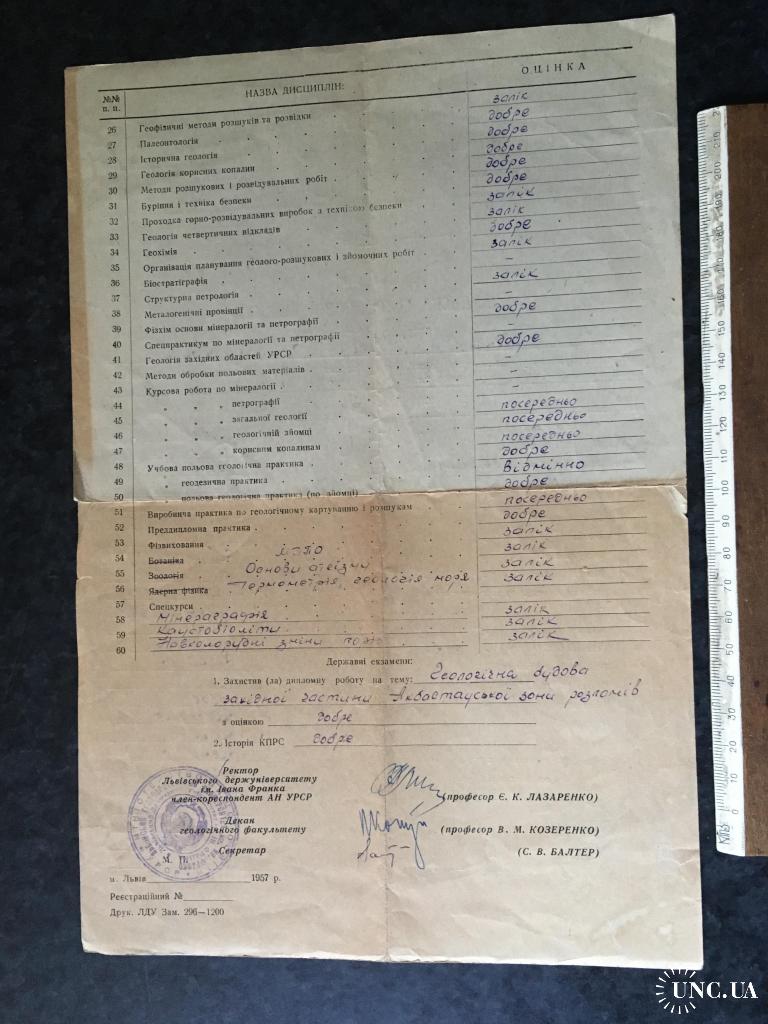 №№ п. п. НАЗВА ДИСЦИПЛІН: ОЦІНКА
26 Геофізичні методи розшуків та розвідки залік
27 Палеонтологія добре
28 Історична геологія добре
29 Геологія корисних копалин добре
30 Методи розшукових і розвідувальних робіт добре
31 Буріння і техніка безпеки добре
32 Проходка горно-розвідувальних виробок з технікою безпеки залік
33 Геологія четвертичних відкладів залік
34 Геохімія добре
35 Організація планування геолого-розшукових і зйомочних робіт залік
36 Біостратіграфія –
37 Структурна петрологія залік
38 Металогенічні провінції –
39 Фізхім основи мінералогії та петрографії добре
40 Спецпрактикум по мінералогії та петрографії –
41 Геологія західних областей УРСР добре
42 Методи обробки польових матеріалів –
43 Курсова робота по мінералогії –
44 „ „ петрографії посередньо
45 „ „ загальної геології посередньо
46 „ „ геологічній зйомці посередньо
47 „ „ корисним копалинам добре
48 Учбова польова геологічна практика відмінно
49 „ геодезична практика добре
50 „ польова геологічна практика (по зйомці) посередньо
51 Виробнича практика по геологічному картуванню і розшукам добре
52 Преддипломна практика залік
53 Фізвиховання залік
54 Ботаніка залік
55 Зоологія Основи атеїзму залік
56 Ядерна фізика Термометрія, геологія моря
57 Спецкурси
58 Мінераграфія залік
59 Каустобіоліти залік
60 Навколорудні зміни порід залік
Державні екзамени:
1. Захистив (ла) дипломну роботу на тему: Геологічна будова
західної частини Акбастауської зони розломів
з оцінкою добре
2. Історія КПРС добре
Ректор
Львівського держуніверситету
ім. Івана Франка
член-кореспондент АН УРСР (професор Є. К. ЛАЗАРЕНКО)
Декан
геологічного факультету (професор В. М. КОЗЕРЕНКО)
Секретар (С. В. БАЛТЕР)
М. П.
м. Львів 1957 р.
Реєстраційний №
Друк. ЛДУ Зам. 296—1200
UNC.UA